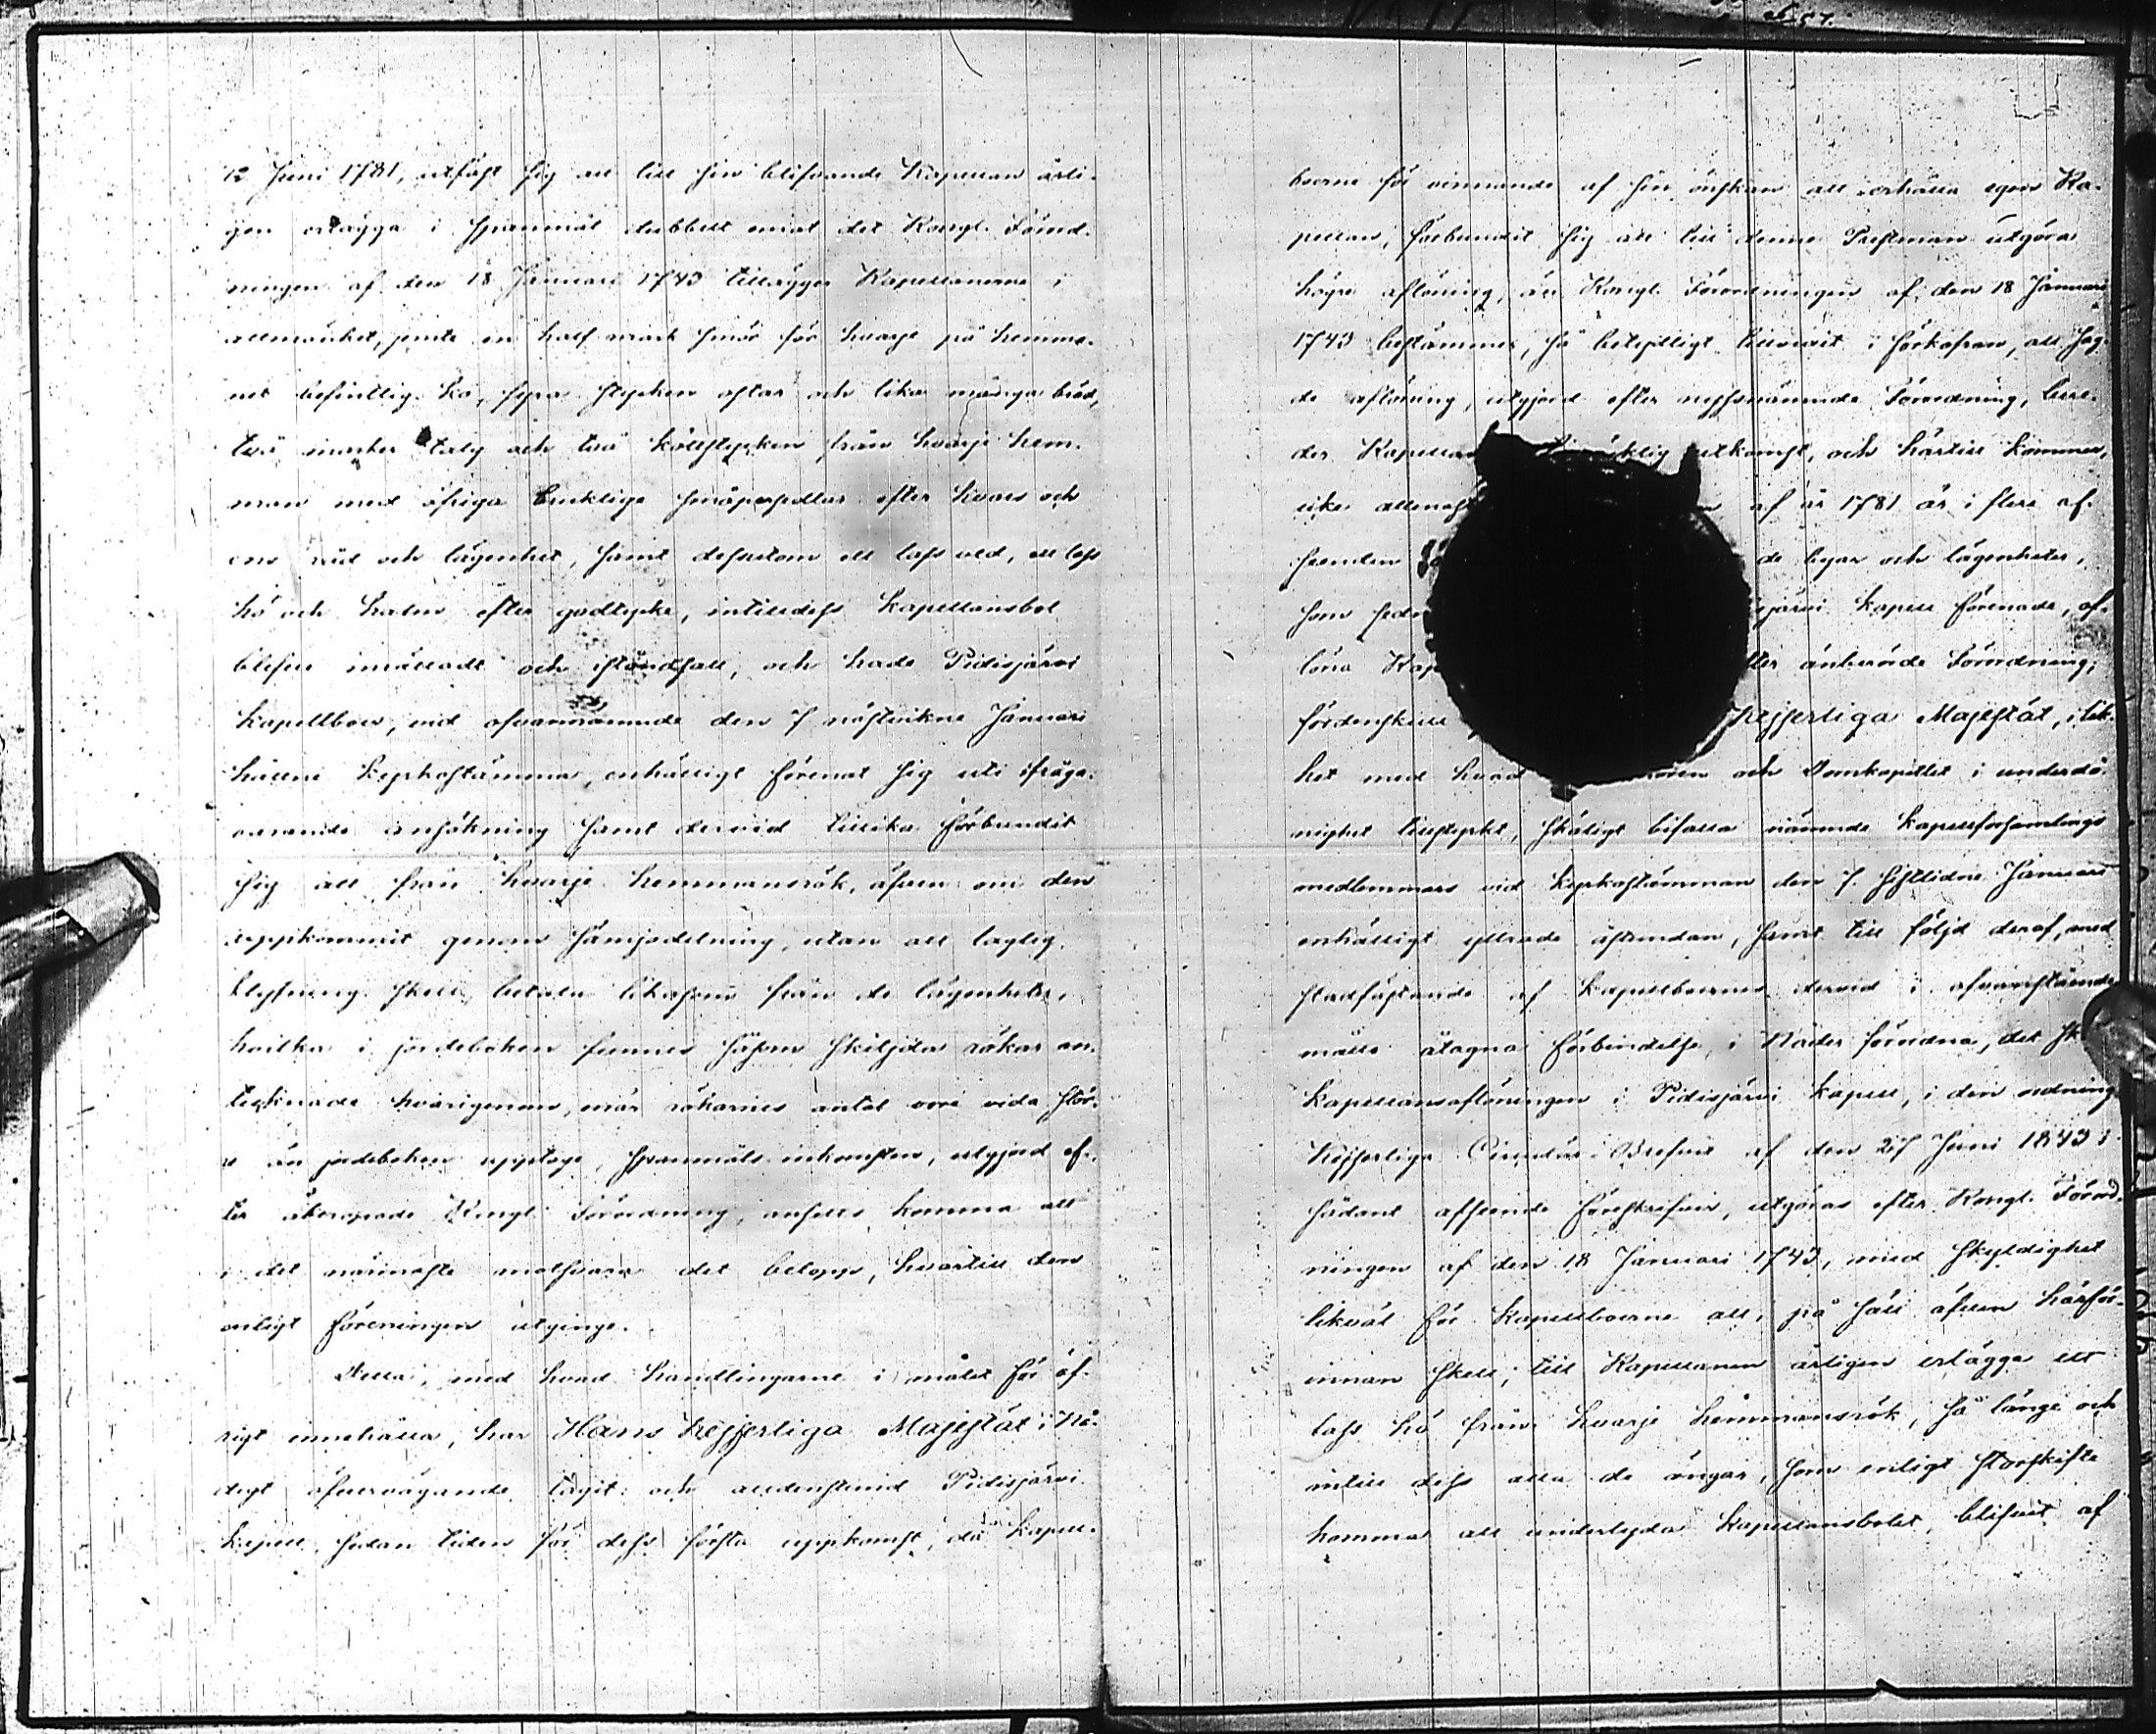 12 Juni 1781, utfäst sig att till sin blifvande Kapellan årli-
gen erlägga i spanmål dubbelt emot det Kongl. Förord-
ningen af den 18 Januari 1743 tillägger Kapellanerne i
allmänhet, jemte en half mark smör för hvarje på hemma-
net befintlig ko, fyra stycken ostar och lika många bröd,
två marker talg och två köttstycken från hvarje hem-
man med öfriga brukliga småpersedlar efter hvars och
ens råd och lägenhet, samt dessutom ett lass ved, ett lass
hö och halm efter godtycke, intilldess kapellansbol
blefve inrättadt och iståndsatt, och hade Pidisjärvi
kapellboer, vid ofvannämnde den 7 nästvikne Januari
hållne kyrkostämma, enhälligt förenat sig uti ifråga-
varande ansökning samt dervid tillika förbundit
sig att från hvarje hemmansrök, äfven om den
uppkommit genom sämjodelning, utan att laglig
klyfning skett, betala likasom från de lägenheter,
hvilka i jordeboken funnes såsom skiljda rökar an-
tecknade hvarigenom, när rökarnes antal vore vida stör-
re än jordeboken upptoge, spanmåls inkomsten, utgjord ef-
ter åberopade Kongl. Förordning, ansetts komma att
i det närmaste motsvara det belopp, hvartill den
enligt föreningen utginge.
Detta, med hvad handlingarne i målet för öf-
rigt innehålla, har Hans Kejserliga Majestät i Nå-
digt öfvervägande tagit: och alldenstund Pidisjärvi
kapell, sedan tiden för dess första uppkomst, då kapell-
boerne för vinnande af sin önskan att erhålla egen Ka-
pellan, förbundit sig att till denne Prestman utgöra
högre aflöning, än Kongl. Förordningen af den 18 Januari
1743 bestämmer, så betydligt tillvuxit i förkofran, att sag-
de aflöning, utgjord efter nyssnämnde Förordning, bere-
der Kapellan utkomst, och härtill kommer,
icke allenast af år 1781 är i flere af-
seenden de byar och lägenheter,
som sedan sjärvi kapell förenade, af-
löna Kap ter änberörde Förordning;
fördenskull Kejserliga Majestät, i lik-
het med hvad och Domkapitlet i underdå-
nighet tillstyrkt, skäligt bifalla nämnde kapellförsamlings
medlemmars vid kyrkostämman den 7. sistlidne Januari
enhälligt yttrade åstundan, samt till följd deraf, med
stadfästande af kapellboernes dervid i ofvanstående
måtto åtagna förbindelse, i Nåder förordna, det sk
kapellansaflöningen i Pidisjärvi kapell, i den ordning
Kejserliga Circulär-Brefvet af den 27 Juni 1843 i
sådant afseende föreskrifver, utgöras efter Kongl. Förord-
ningen af den 18 Januari 1743, med skyldighet
likväl för kapellboerne att, på sätt äfven härför-
innan skett, till Kapellanen årligen erlägga ett
lass hö från hvarje hemmansrök, så länge och
intill dess alla de ängar, som enligt storskifte
komma att underlyda kapellansbolet, blifvit af